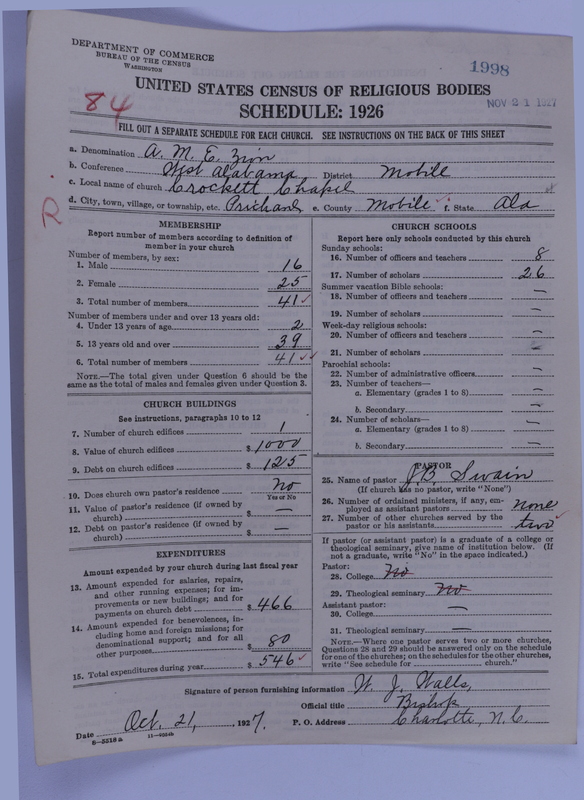 DEPARTMENT OF COMMERCE
BUREAU OF THE CENSUS
WASHINGTON
1998
UNITED STATES CENSUS OF RELIGIOUS BODIES
NOV 21 1927
84
SCHEDULE: 1926
FILL OUT A SEPARATE SCHEDULE FOR EACH CHURCH. SEE INSTRUCTIONS ON THE BACK OF THIS SHEET
a. Denomination A. M. E. Zion
b. Conference West Alabama District Mobile
c. Local name of church Crockett Chapel
d. City, town, village, or township, etc. Prichard e. County Mobile f. State Ala
R.
MEMBERSHIP
Report number of members according to definition of
member in your church
Number of members, by sex:
1. Male 16
2. Female 25
3. Total number of members 41
Number of members under and over 13 years old:
4. Under 13 years of age 2
5. 13 years old and over 39
6. Total number of members 41
NOTE.—The total given under Question 6 should be the
same as the total of males and females given under Question 3.
CHURCH BUILDINGS
See instructions, paragraphs 10 to 12
7. Number of church edifices 1
8. Value of church edifices $ 1000
9. Debt on church edifices $ 125
10. Does church own pastor's residence No
Yes or No
11. Value of pastor's residence (if owned by
church) $ —
12. Debt on pastor's residence (if owned by
church) $ —
EXPENDITURES
Amount expended by your church during last fiscal year
13. Amount expended for salaries, repairs,
and other running expenses; for im-
provements or new buildings; and for
payments on church debt $ 466
14. Amount expended for benevolences, in-
cluding home and foreign missions; for
denominational support; and for all
other purposes $ 80
15. Total expenditures during year $ 546
CHURCH SCHOOLS
Report here only schools conducted by this church
Sunday schools:
16. Number of officers and teachers 8
17. Number of scholars 26
Summer vacation Bible schools:
18. Number of officers and teachers —
19. Number of scholars —
Week-day religious schools:
20. Number of officers and teachers —
21. Number of scholars —
Parochial schools:
22. Number of administrative officers —
23. Number of teachers—
a. Elementary (grades 1 to 8) —
b. Secondary —
24. Number of scholars—
a. Elementary (grades 1 to 8) —
b. Secondary —
PASTOR
25. Name of pastor J. B. Swain
(If church has no pastor, write "None")
26. Number of ordained ministers, if any, em-
ployed as assistant pastors none
27. Number of other churches served by the
pastor or his assistants two
If pastor (or assistant pastor) is a graduate of a college or
theological seminary, give name of institution below. (If
not a graduate, write "No" in the space indicated.)
Pastor:
28. College No
29. Theological seminary No
Assistant pastor:
30. College —
31. Theological seminary —
NOTE.—Where one pastor serves two or more churches,
Questions 28 and 29 should be answered only on the schedule
for one of the churches; on the schedules for the other churches,
write "See schedule for church."
Signature of person furnishing information W. J. Walls,
Official title Bishop
Date Oct. 21, 1927. P. O. Address Charlotte, N. C.